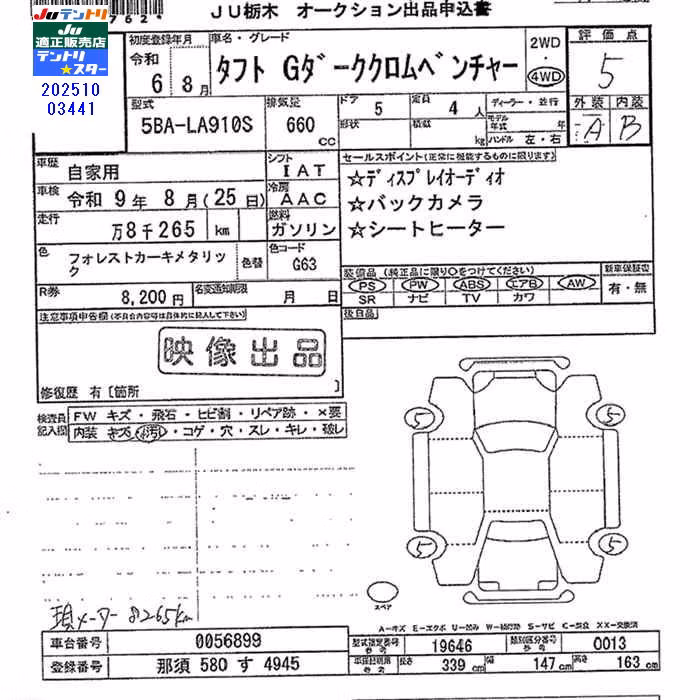 JU栃木 オークション出品申込書
762*
JUテントリ
JU
適正販売店
テントリ
★スター
202510
03441
初度登録年月
令和
6 8月
車名・グレード
タフト Gダーククロムベンチャー
2WD
・
4WD
評価点
5
外装 内装
A B
型式
5BA-LA910S
排気量
660
cc
ドア
5
定員
4 人
形状
積載
kg
ディーラー・並行
モデル年式
年
ハンドル 左・右
車歴
自家用
シフト
IAT
車検
令和 9年 8月(25日)
冷房
AAC
走行
万8千265 km
燃料
ガソリン
色
フォレストカーキメタリック
色替
色コード
G63
R券
8,200円
名変通知期限
月 日
セールスポイント(正常に機能するものに限ります)
☆ディスプレイオーディオ
☆バックカメラ
☆シートヒーター
装備品(純正品に限り○をつけてください)
PS PW ABS エアB AW
SR ナビ TV カワ
新車保証書
有・無
後日品
注意事項申告欄(不具合内容等は具体的に記入して下さい)
映像出品
修復歴 有〔箇所 〕
検査員記入欄
FW キズ・飛石・ヒビ割・リペア跡・×要
内装 キズ・汚れ・コゲ・穴・スレ・キレ・破レ
5 5
5 5
スペア
現メーター 8265km
A-キズ E-エクボ U-凹み W-補修跡 S-サビ C-腐食 XX-交換済
車台番号
0056899
型式指定番号
参考
19646
類別区分番号
参考
0013
登録番号
那須 580 す 4945
車検証記載
参考
長さ 339 cm 幅 147 cm 高さ 163 cm